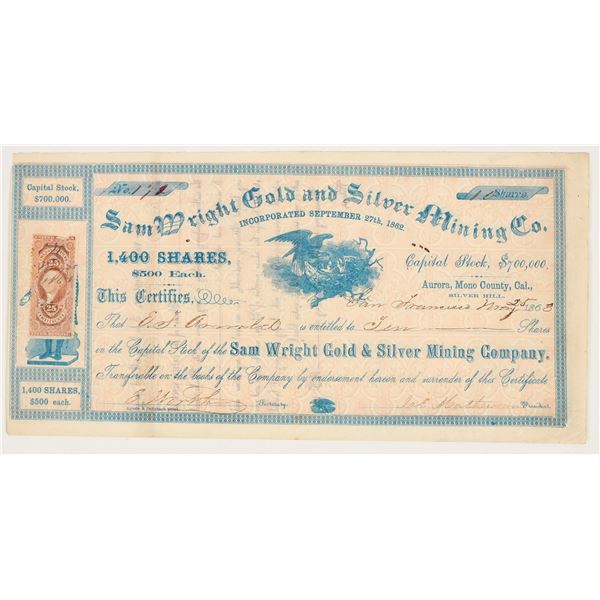 Capital Stock,
$700,000.
No. 172
10 Shares
Sam Wright Gold and Silver Mining Co.
INCORPORATED SEPTEMBER 27th, 1862.
1,400 SHARES,
$500 Each.
Capital Stock, $700,000,
Aurora, Mono County, Cal.,
SILVER HILL.
This Certifies,
San Francisco Nov 25 1863
That Arnold is entitled to Ten Shares
on the Capital Stock of the Sam Wright Gold & Silver Mining Company.
Transferable on the books of the Company by endorsement hereon and surrender of this Certificate
Secretary.
President.
25
25
1,400 SHARES,
$500 each.